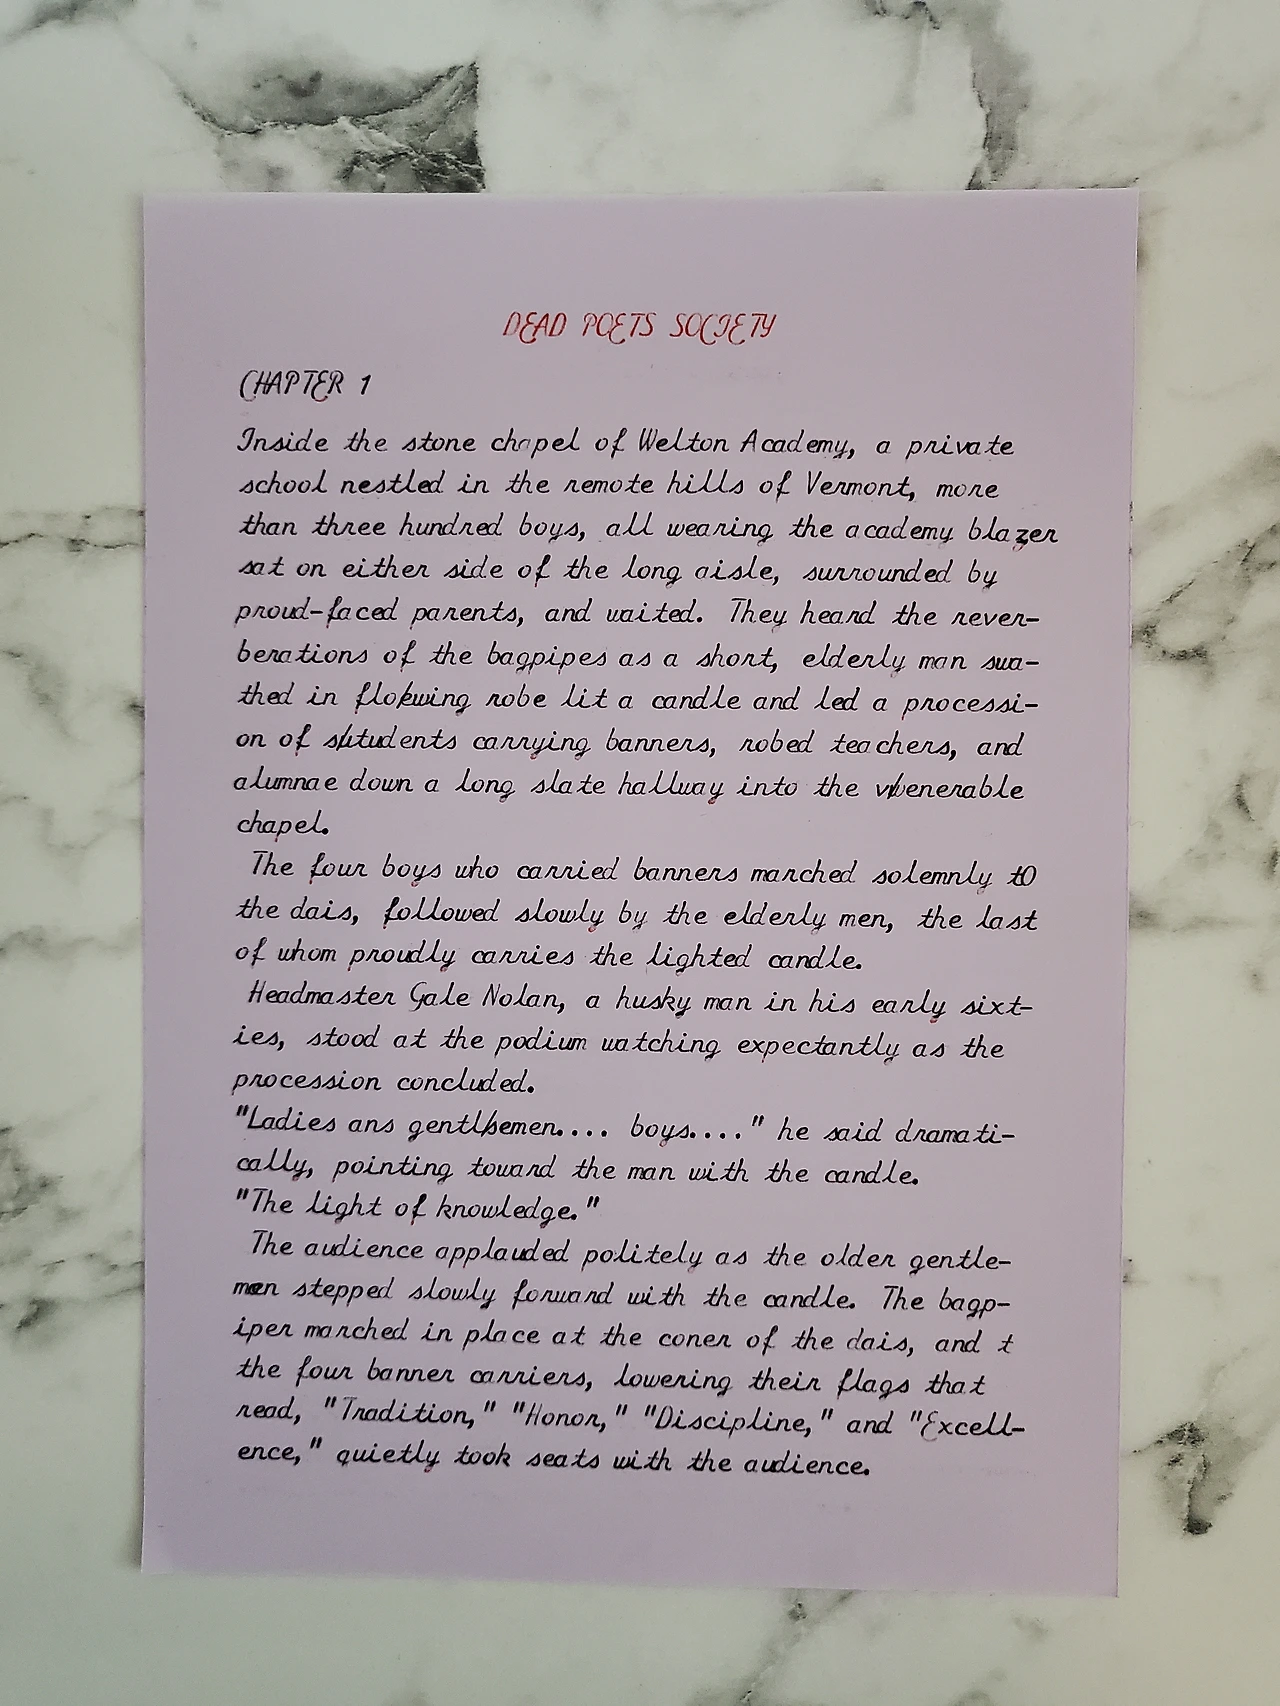 DEAD POETS SOCIETY
CHAPTER 1
Inside the stone chapel of Welton Academy, a private
school nestled in the remote hills of Vermont, more
than three hundred boys, all wearing the academy blazer
sat on either side of the long aisle, surrounded by
proud-faced parents, and waited. They heard the rever-
berations of the bagpipes as a short, elderly man swa-
thed in flowing robe lit a candle and led a processi-
on of students carrying banners, robed teachers, and
alumnae down a long slate hallway into the venerable
chapel.
The four boys who carried banners marched solemnly to
the dais, followed slowly by the elderly men, the last
of whom proudly carries the lighted candle.
Headmaster Gale Nolan, a husky man in his early sixt-
ies, stood at the podium watching expectantly as the
procession concluded.
"Ladies ans gentlemen.... boys...." he said dramati-
cally, pointing toward the man with the candle.
"The light of knowledge."
The audience applauded politely as the older gentle-
men stepped slowly forward with the candle. The bagp-
iper marched in place at the coner of the dais, and t
the four banner carriers, lowering their flags that
read, "Tradition," "Honor," "Discipline," and "Excell-
ence," quietly took seats with the audience.